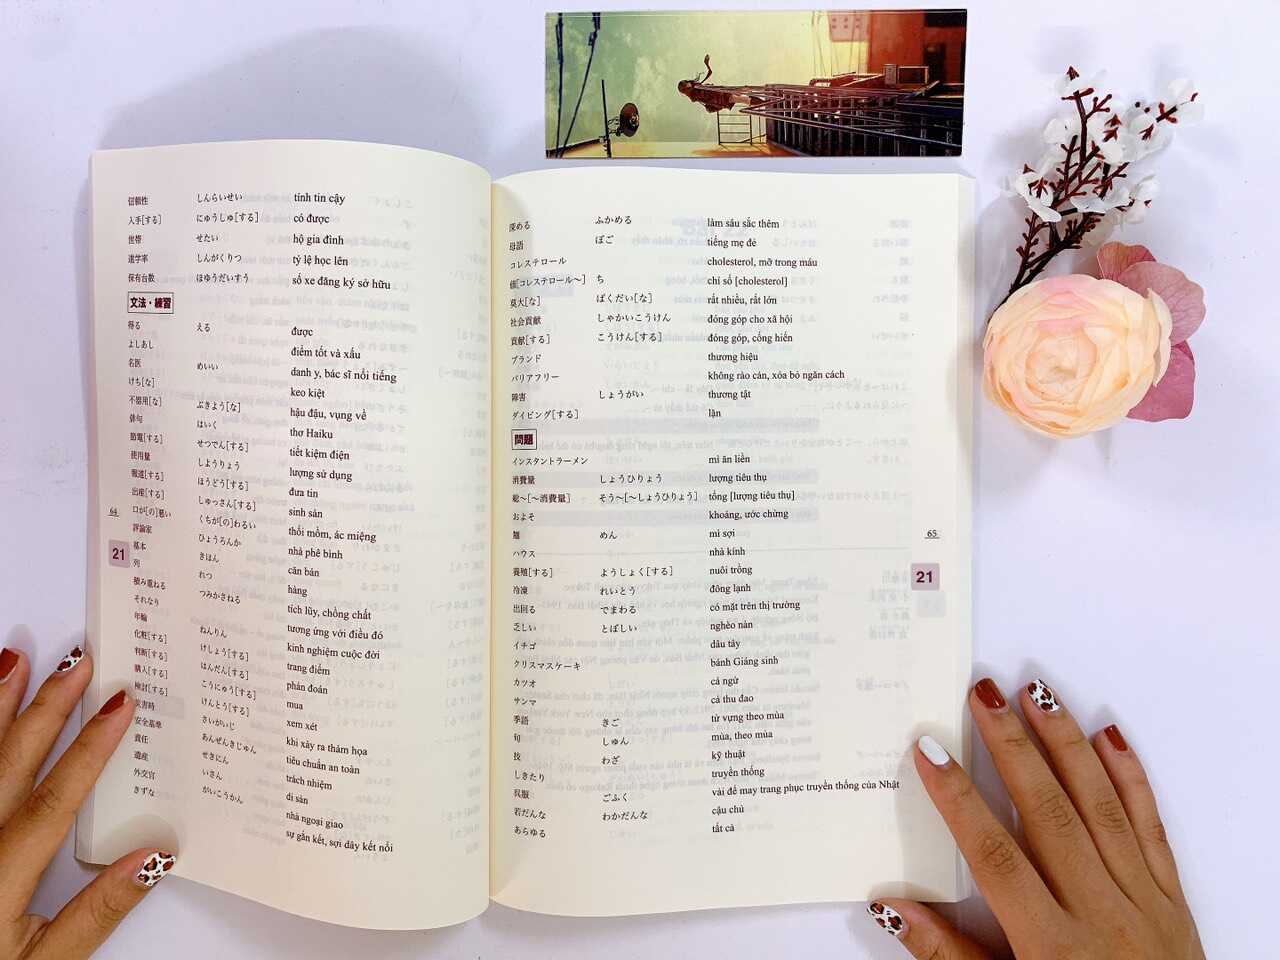 信頼性 しんらいせい tính tin cậy
入手[する] にゅうしゅ[する] có được
世帯 せたい hộ gia đình
進学率 しんがくりつ tỷ lệ học lên
保有台数 ほゆうだいすう số xe đăng ký sở hữu
文法・練習
得る える được
よしあし điểm tốt và xấu
名医 めいい danh y, bác sĩ nổi tiếng
けち[な] keo kiệt
不器用[な] ぶきよう[な] hậu đậu, vụng về
俳句 はいく thơ Haiku
節電[する] せつでん[する] tiết kiệm điện
使用量 しようりょう lượng sử dụng
報道[する] ほうどう[する] đưa tin
出産[する] しゅっさん[する] sinh sản
口が[の]悪い くちが[の]わるい thối mồm, ác miệng
評論家 ひょうろんか nhà phê bình
基本 きほん căn bản
列 れつ hàng
積み重ねる つみかさねる tích lũy, chồng chất
それなり tương ứng với điều đó
年輪 ねんりん kinh nghiệm cuộc đời
化粧[する] けしょう[する] trang điểm
判断[する] はんだん[する] phán đoán
購入[する] こうにゅう[する] mua
検討[する] けんとう[する] xem xét
災害時 さいがいじ khi xảy ra thảm họa
安全基準 あんぜんきじゅん tiêu chuẩn an toàn
責任 せきにん trách nhiệm
遺産 いさん di sản
外交官 がいこうかん nhà ngoại giao
きずな sự gắn kết, sợi dây kết nối
64
21
深める ふかめる làm sâu sắc thêm
母語 ぼご tiếng mẹ đẻ
コレステロール cholesterol, mỡ trong máu
値[コレステロール～] ち chỉ số [cholesterol]
莫大[な] ばくだい[な] rất nhiều, rất lớn
社会貢献 しゃかいこうけん đóng góp cho xã hội
貢献[する] こうけん[する] đóng góp, cống hiến
ブランド thương hiệu
バリアフリー không rào cản, xóa bỏ ngăn cách
障害 しょうがい thương tật
ダイビング[する] lặn
問題
インスタントラーメン mì ăn liền
消費量 しょうひりょう lượng tiêu thụ
総～[～消費量] そう～[～しょうひりょう] tổng [lượng tiêu thụ]
およそ khoảng, ước chừng
麺 めん mì sợi
ハウス nhà kính
養殖[する] ようしょく[する] nuôi trồng
冷凍 れいとう đông lạnh
出回る でまわる có mặt trên thị trường
乏しい とぼしい nghèo nàn
イチゴ dâu tây
クリスマスケーキ bánh Giáng sinh
カツオ cá ngừ
サンマ cá thu đao
季語 きご từ vựng theo mùa
旬 しゅん mùa, theo mùa
技 わざ kỹ thuật
しきたり truyền thống
呉服 ごふく vải để may trang phục truyền thống của Nhật
若だんな わかだんな cậu chủ
あらゆる tất cả
65
21